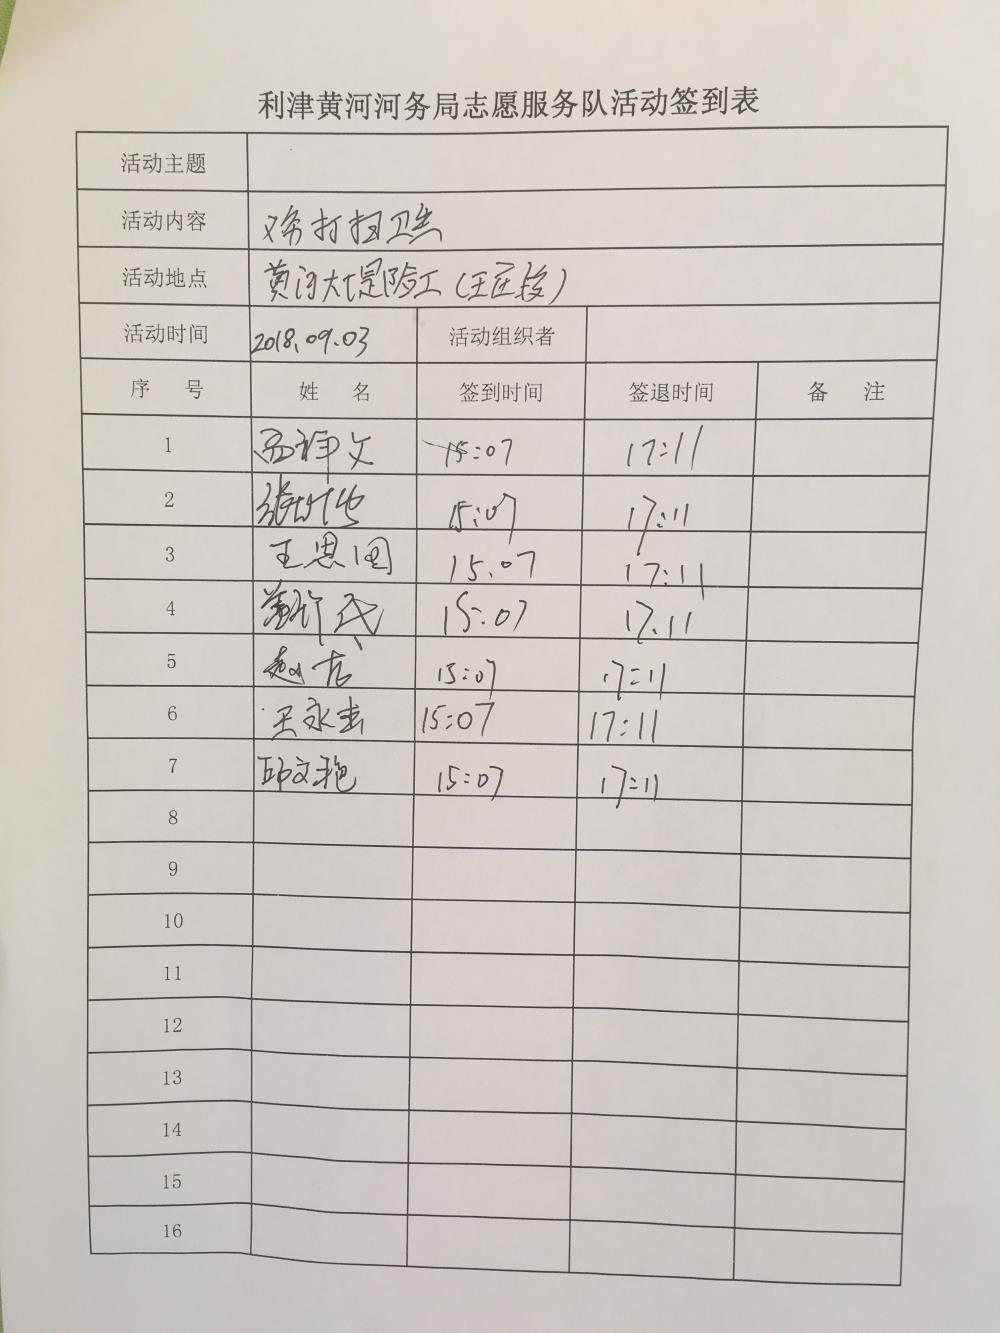 利津黄河河务局志愿服务队活动签到表
活动主题
活动内容 义务打扫卫生
活动地点 黄河大堤险工（王庄段）
活动时间 2018.09.03 活动组织者
序 号 姓 名 签到时间 签退时间 备 注
1 15:07 17:11
2 15:07 17:11
3 王恩国 15.07 17:11
4 15:07 17.11
5 15:07 17:11
6 王永 15:07 17:11
7 邱文艳 15:07 17:11
8
9
10
11
12
13
14
15
16